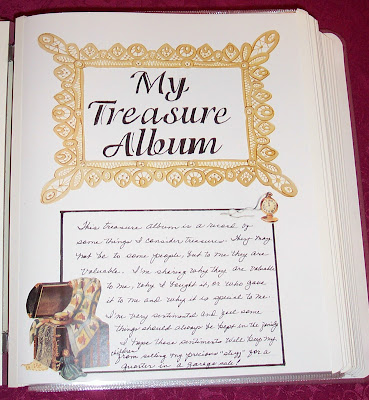 My
Treasure
Album
This treasure album is a record of
some things I consider treasures. They may
not be to some people, but to me they are
valuable. I'm sharing why they are valuable
to me, why I bought it, or who gave
it to me and why it is special to me.
I'm very sentimental and feel some
things should always be kept in the family.
I hope these sentiments will keep my
children from selling my precious "stuff" for a
quarter in a garage sale!